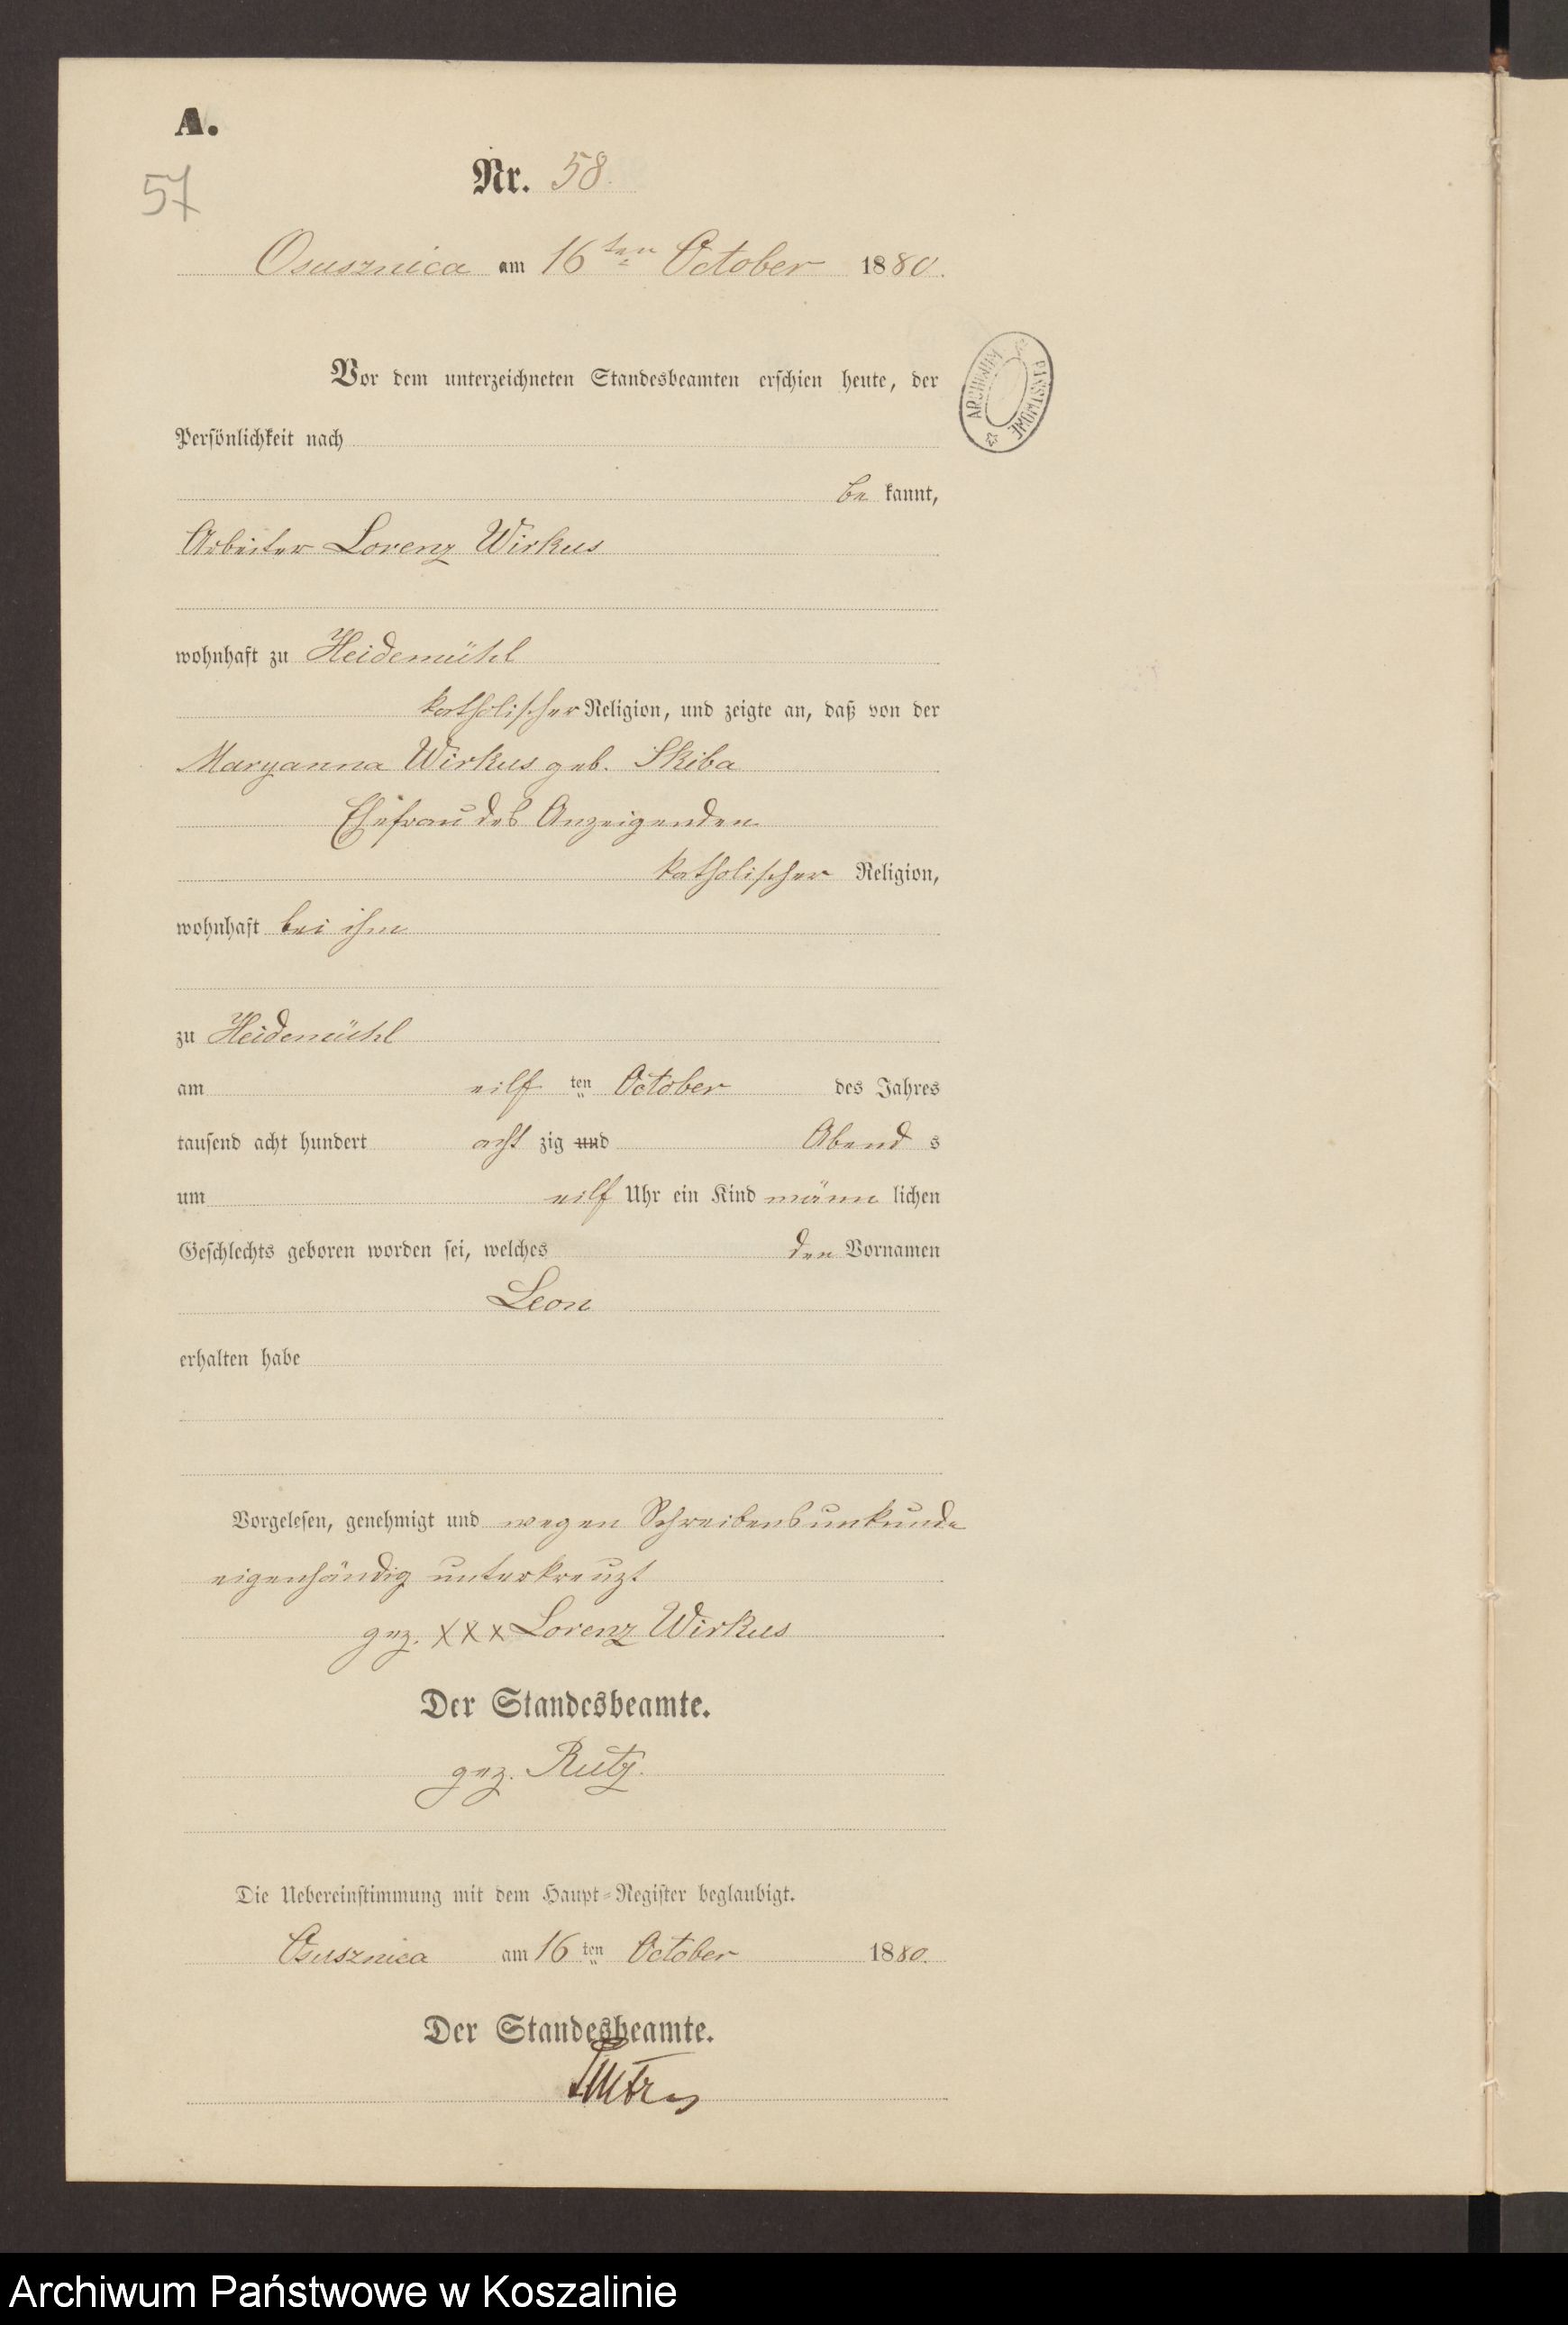 A.
57
Nr. 58.
Osusznica am 16ten October 1880.
Vor dem unterzeichneten Standesbeamten erschien heute, der
Persönlichkeit nach
be kannt,
Arbeiter Lorenz Wirkus
wohnhaft zu Heidemühl
katholischer Religion, und zeigte an, daß von der
Maryanna Wirkus geb. Skiba
Ehefrau des Anzeigenden
katholischer Religion,
wohnhaft bei ihm
zu Heidemühl
am eilf ten October des Jahres
tausend acht hundert acht zig und Abend s
um eilf Uhr ein Kind männ lichen
Geschlechts geboren worden sei, welches den Vornamen
Leon
erhalten habe
Vorgelesen, genehmigt und wegen Schreibensunkunde
eigenhändig unterkreuzt
gez. XXX Lorenz Wirkus
Der Standesbeamte.
gez. Rutz.
Die Uebereinstimmung mit dem Haupt-Register beglaubigt.
Osusznica am 16 ten October 1880.
Der Standesbeamte.
ARCHIWUM PAŃSTWOWE
Archiwum Państwowe w Koszalinie